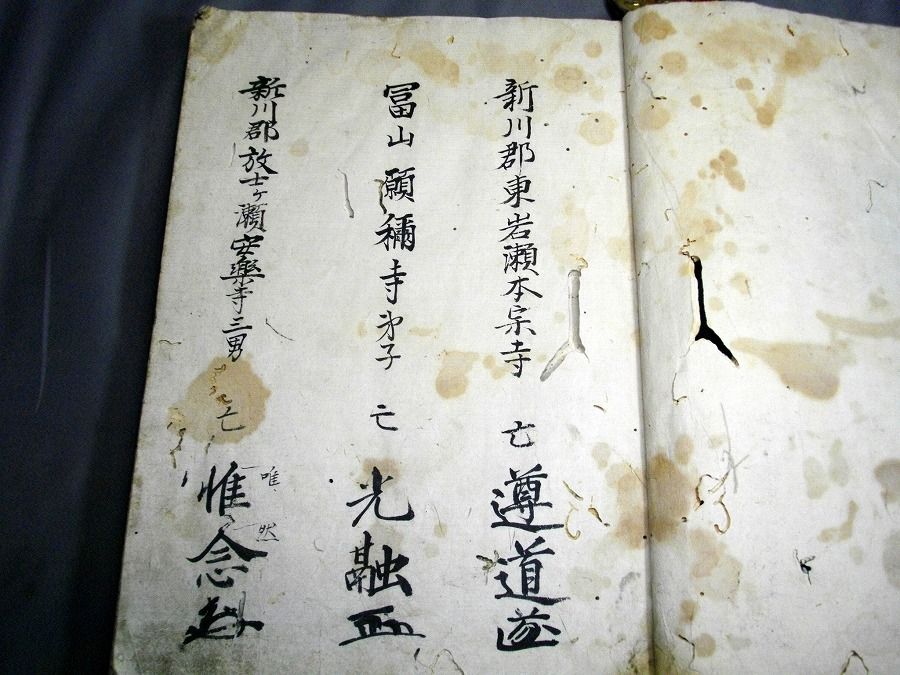 新川郡東岩瀬本宗寺 亡 遵道
冨山 願稱寺弟子 亡 光融
新川郡放士ヶ瀬安樂寺三男 亡 惟念
唯然